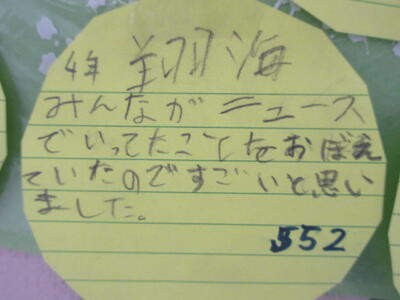 4年 翔海
みんながニュース
でいってたことをおぼえ
ていたのですごいと思い
ました。
552